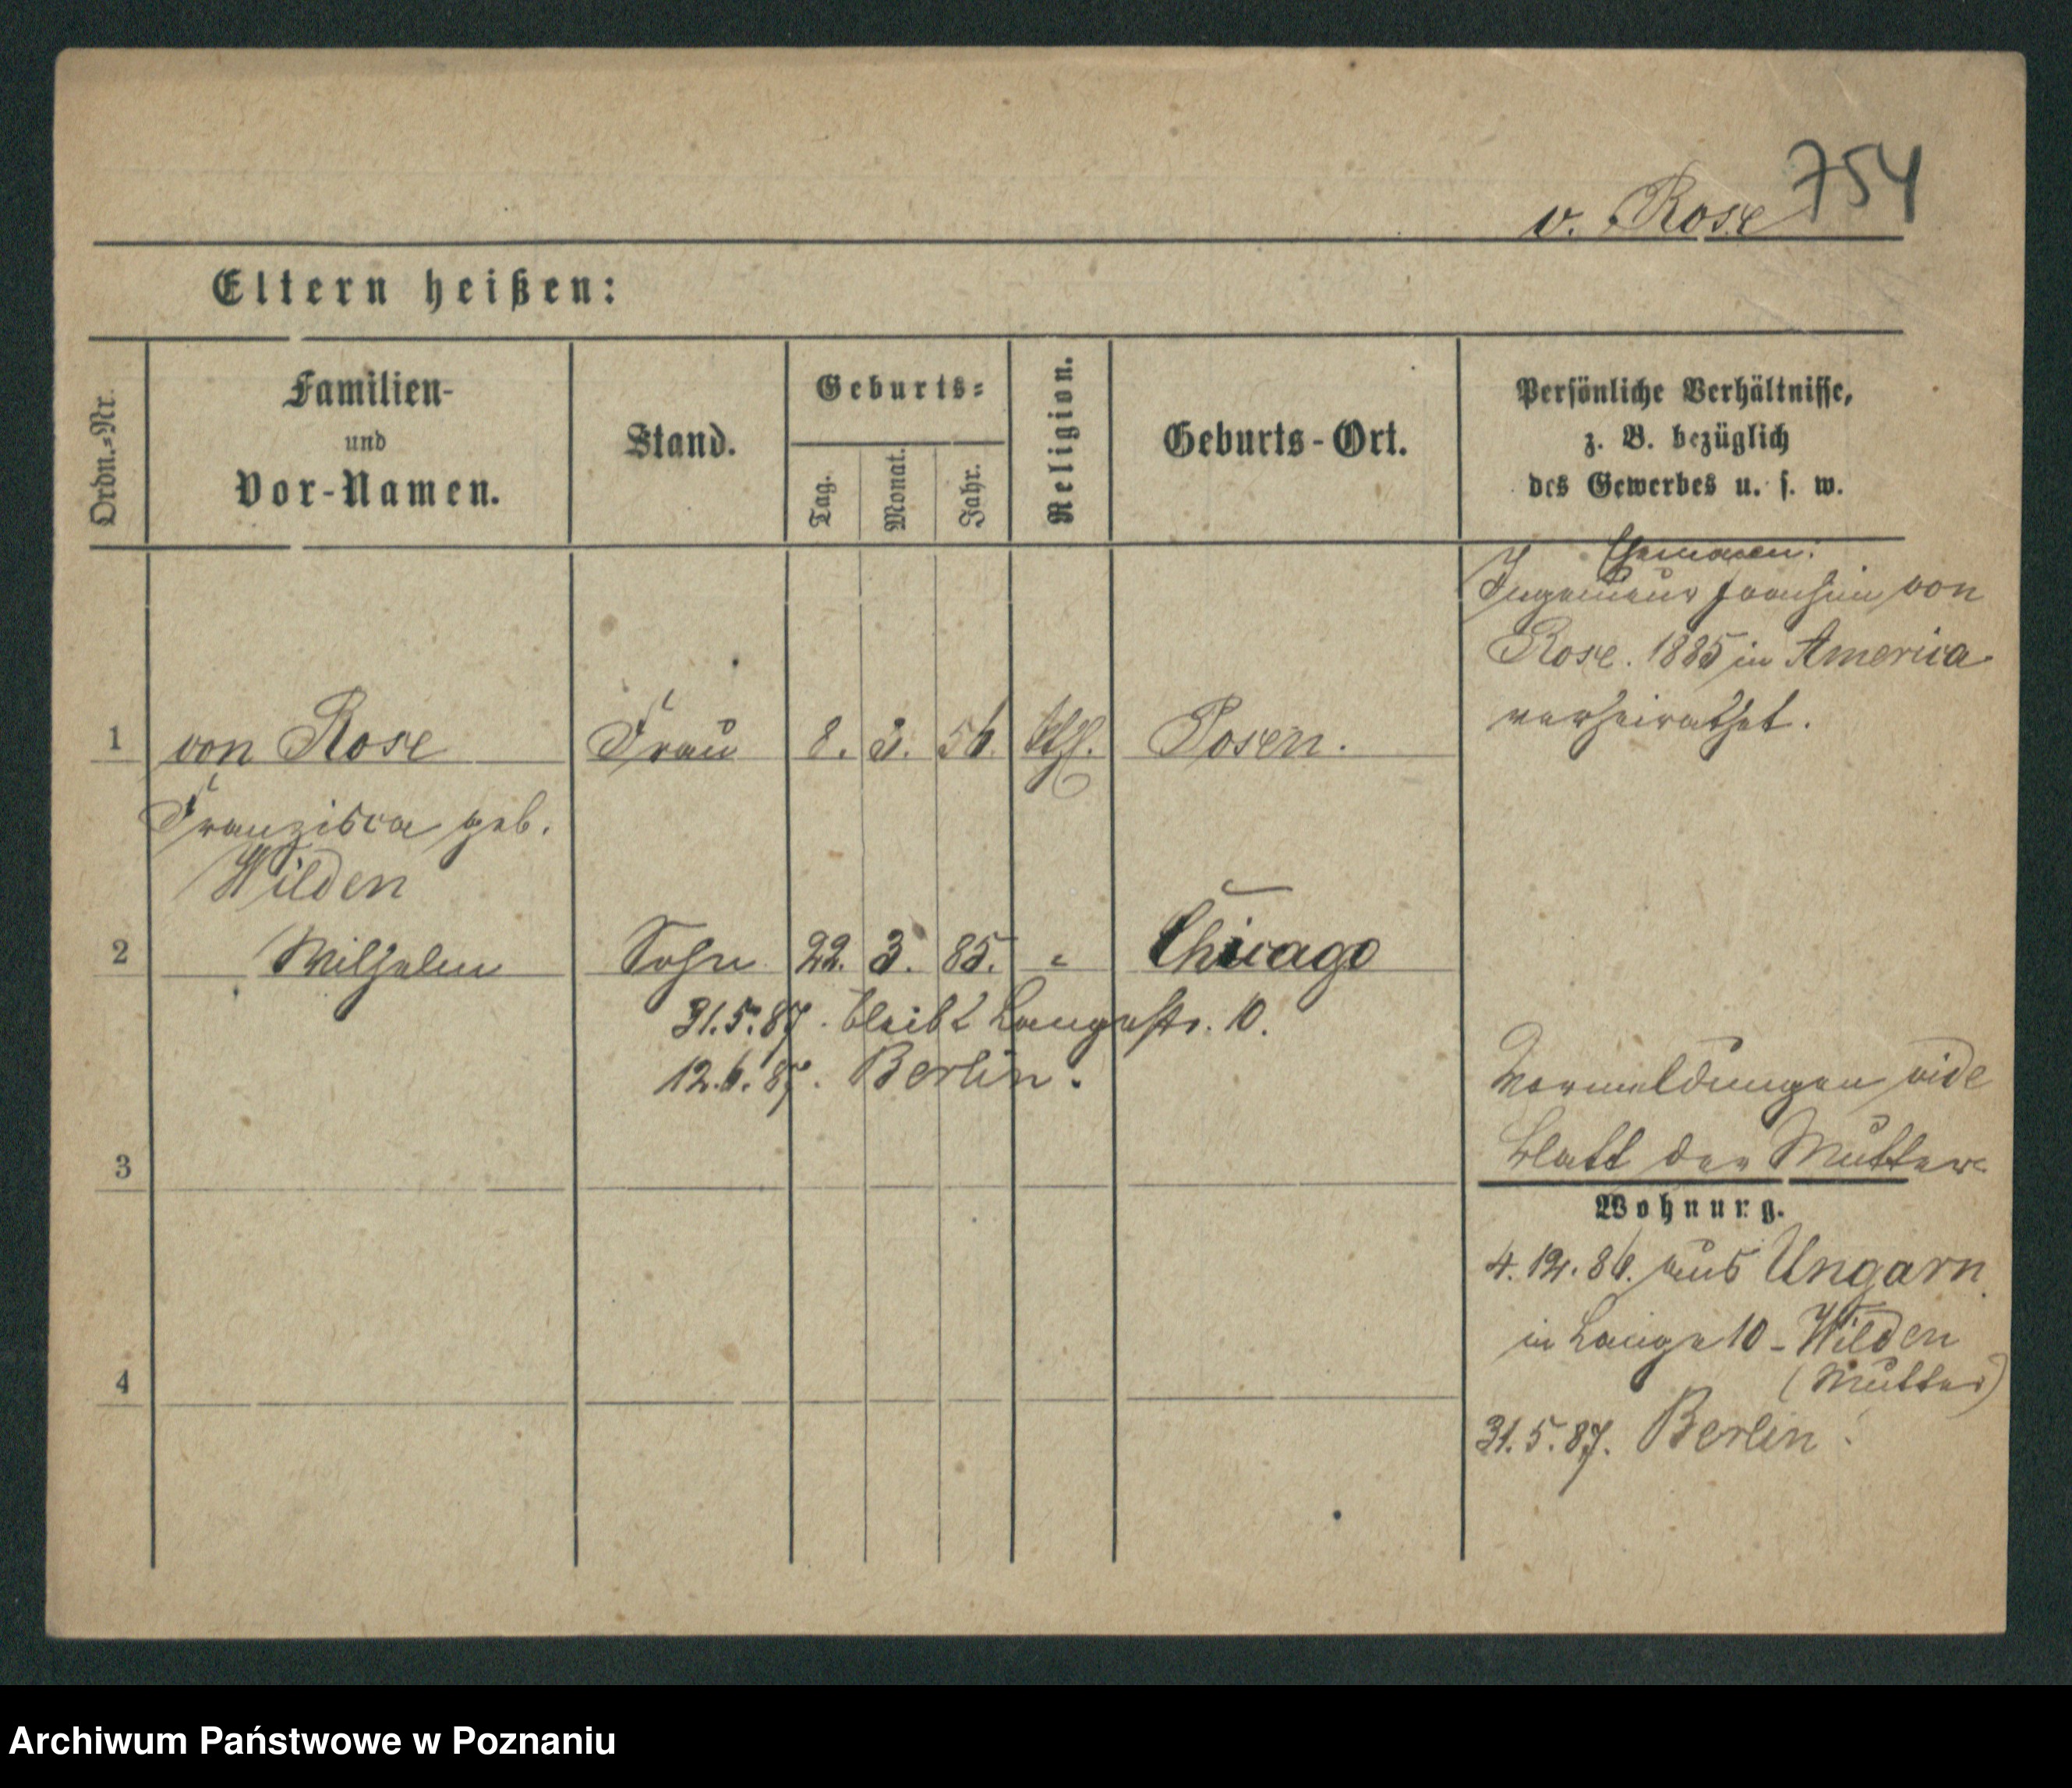 754
v. Rose
Eltern heißen:
Ordn.-Nr.
Familien-
und
Vor-Namen.
Stand.
Geburts-
Tag.
Monat.
Jahr.
Religion.
Geburts-Ort.
Persönliche Verhältnisse,
z. B. bezüglich
des Gewerbes u. s. w.
Ehemann:
Ingenieur von
Rose. 1885 in America
verheirathet.
1 von Rose Frau 8. 3. 56. Posen.
Franzisca geb.
Wilden
2 Wilhelm Sohn 22. 3. 85. " Chicago
31.5.87. bleibt Langestr. 10.
12.6.87. Berlin.
Vormeldungen vide
Blatt der Mutter
3
Wohnung.
4.12.86. aus Ungarn
in Lange 10 - Wilden
(Mutter)
4
31.5.87. Berlin
Archiwum Państwowe w Poznaniu